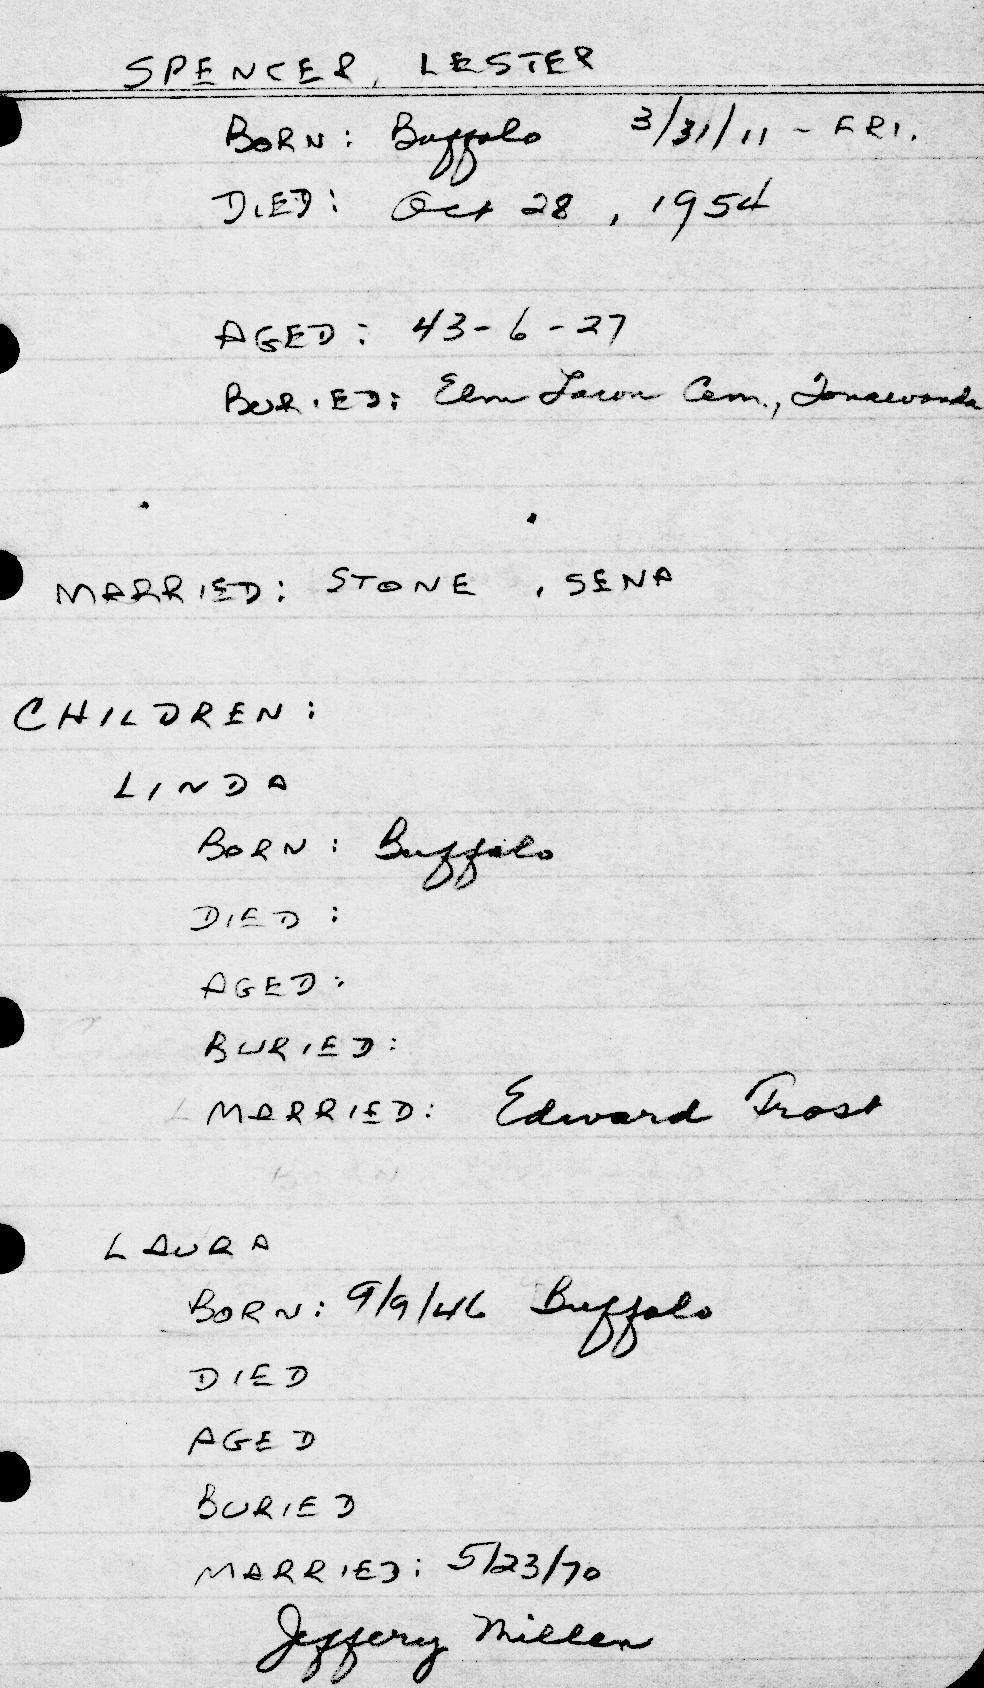 SPENCER, LESTER
BORN: Buffalo 3/31/11 - FRI.
DIED: Oct 28, 1954
AGED: 43-6-27
BURIED: Elm Lawn Cem., Tonawanda
MARRIED: STONE, SENA
CHILDREN:
LINDA
BORN: Buffalo
DIED:
AGED:
BURIED:
MARRIED: Edward Trost
LAURA
BORN: 9/9/46 Buffalo
DIED
AGED
BURIED
MARRIED: 5/23/70
Jeffery Miller